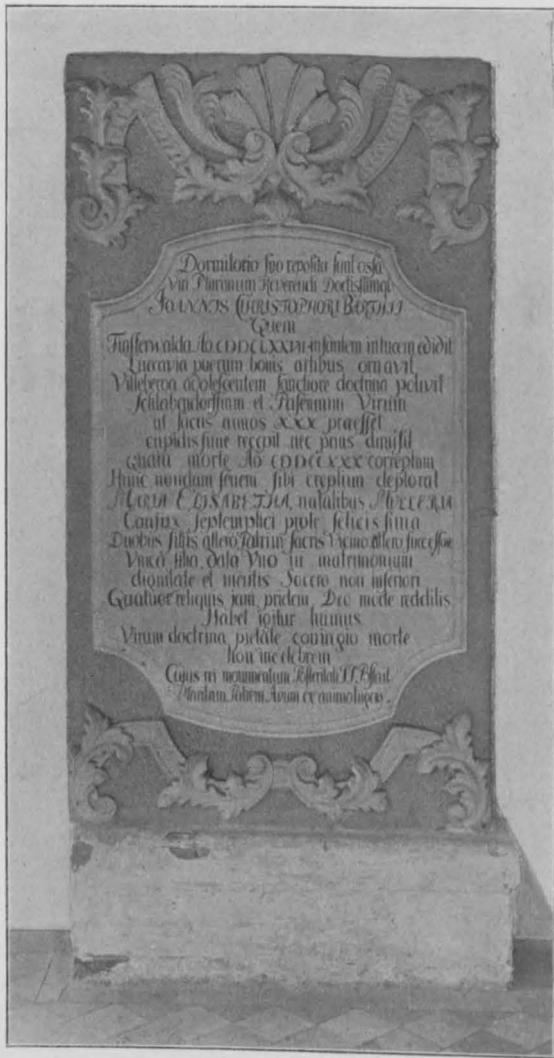 Dormitorio suo reposita sunt ossa
Viri Plurimum Reverendi Doctissimiq
JOANNIS CHRISTOPHORI BARTHII
Quem
Finsterwalda Ao CIƆIƆCLXXVII infantem in lucem edidit
Luccavia puerum bonis artibus ornavit
Villeberga adolescentem sanctiore doctrina polivit
Schlabendorffium et Paserinum Virum
ut sacris annos XXX praeesset
cupidissime recepit nec prius dimisit
quam morte Ao CIƆIƆCCXXX correptum
Hunc nondum senem sibi ereptum deplorat
MARIA ELISABETHA, natalibus MULLERIA
Conjux septemplici prole felicissima
Duobus filiis altero Patrin sacris Vicino altero successore
Unica filia data Viro in matrimonium
dignitate et meritis Socero non inferiori
Quatuor reliquis jam pridem Deo mode redditis
Habet igitur humus
Virum doctrina pietate conjugio morte
Non incelebrem
Cujus rei monumentum Posteritati
Maritum Patrem Avum ex animo lugens